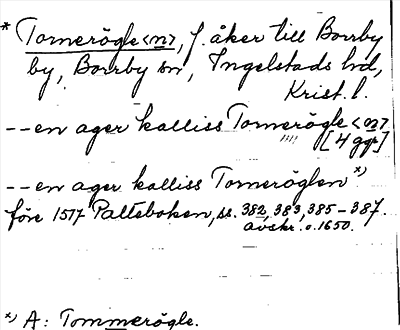 * Tornerögle <n>, f. åker till Borrby
by, Borrby sn, Ingelstads hd,
Krist. l.
--en ager kalliss Tornerögle <n>
[4 ggr]
--en ager kalliss Torneröglen x)
före 1517 Palteboken, ss. 382, 383, 385-387.
avskr. o. 1650.
x) A: Tommerögle.